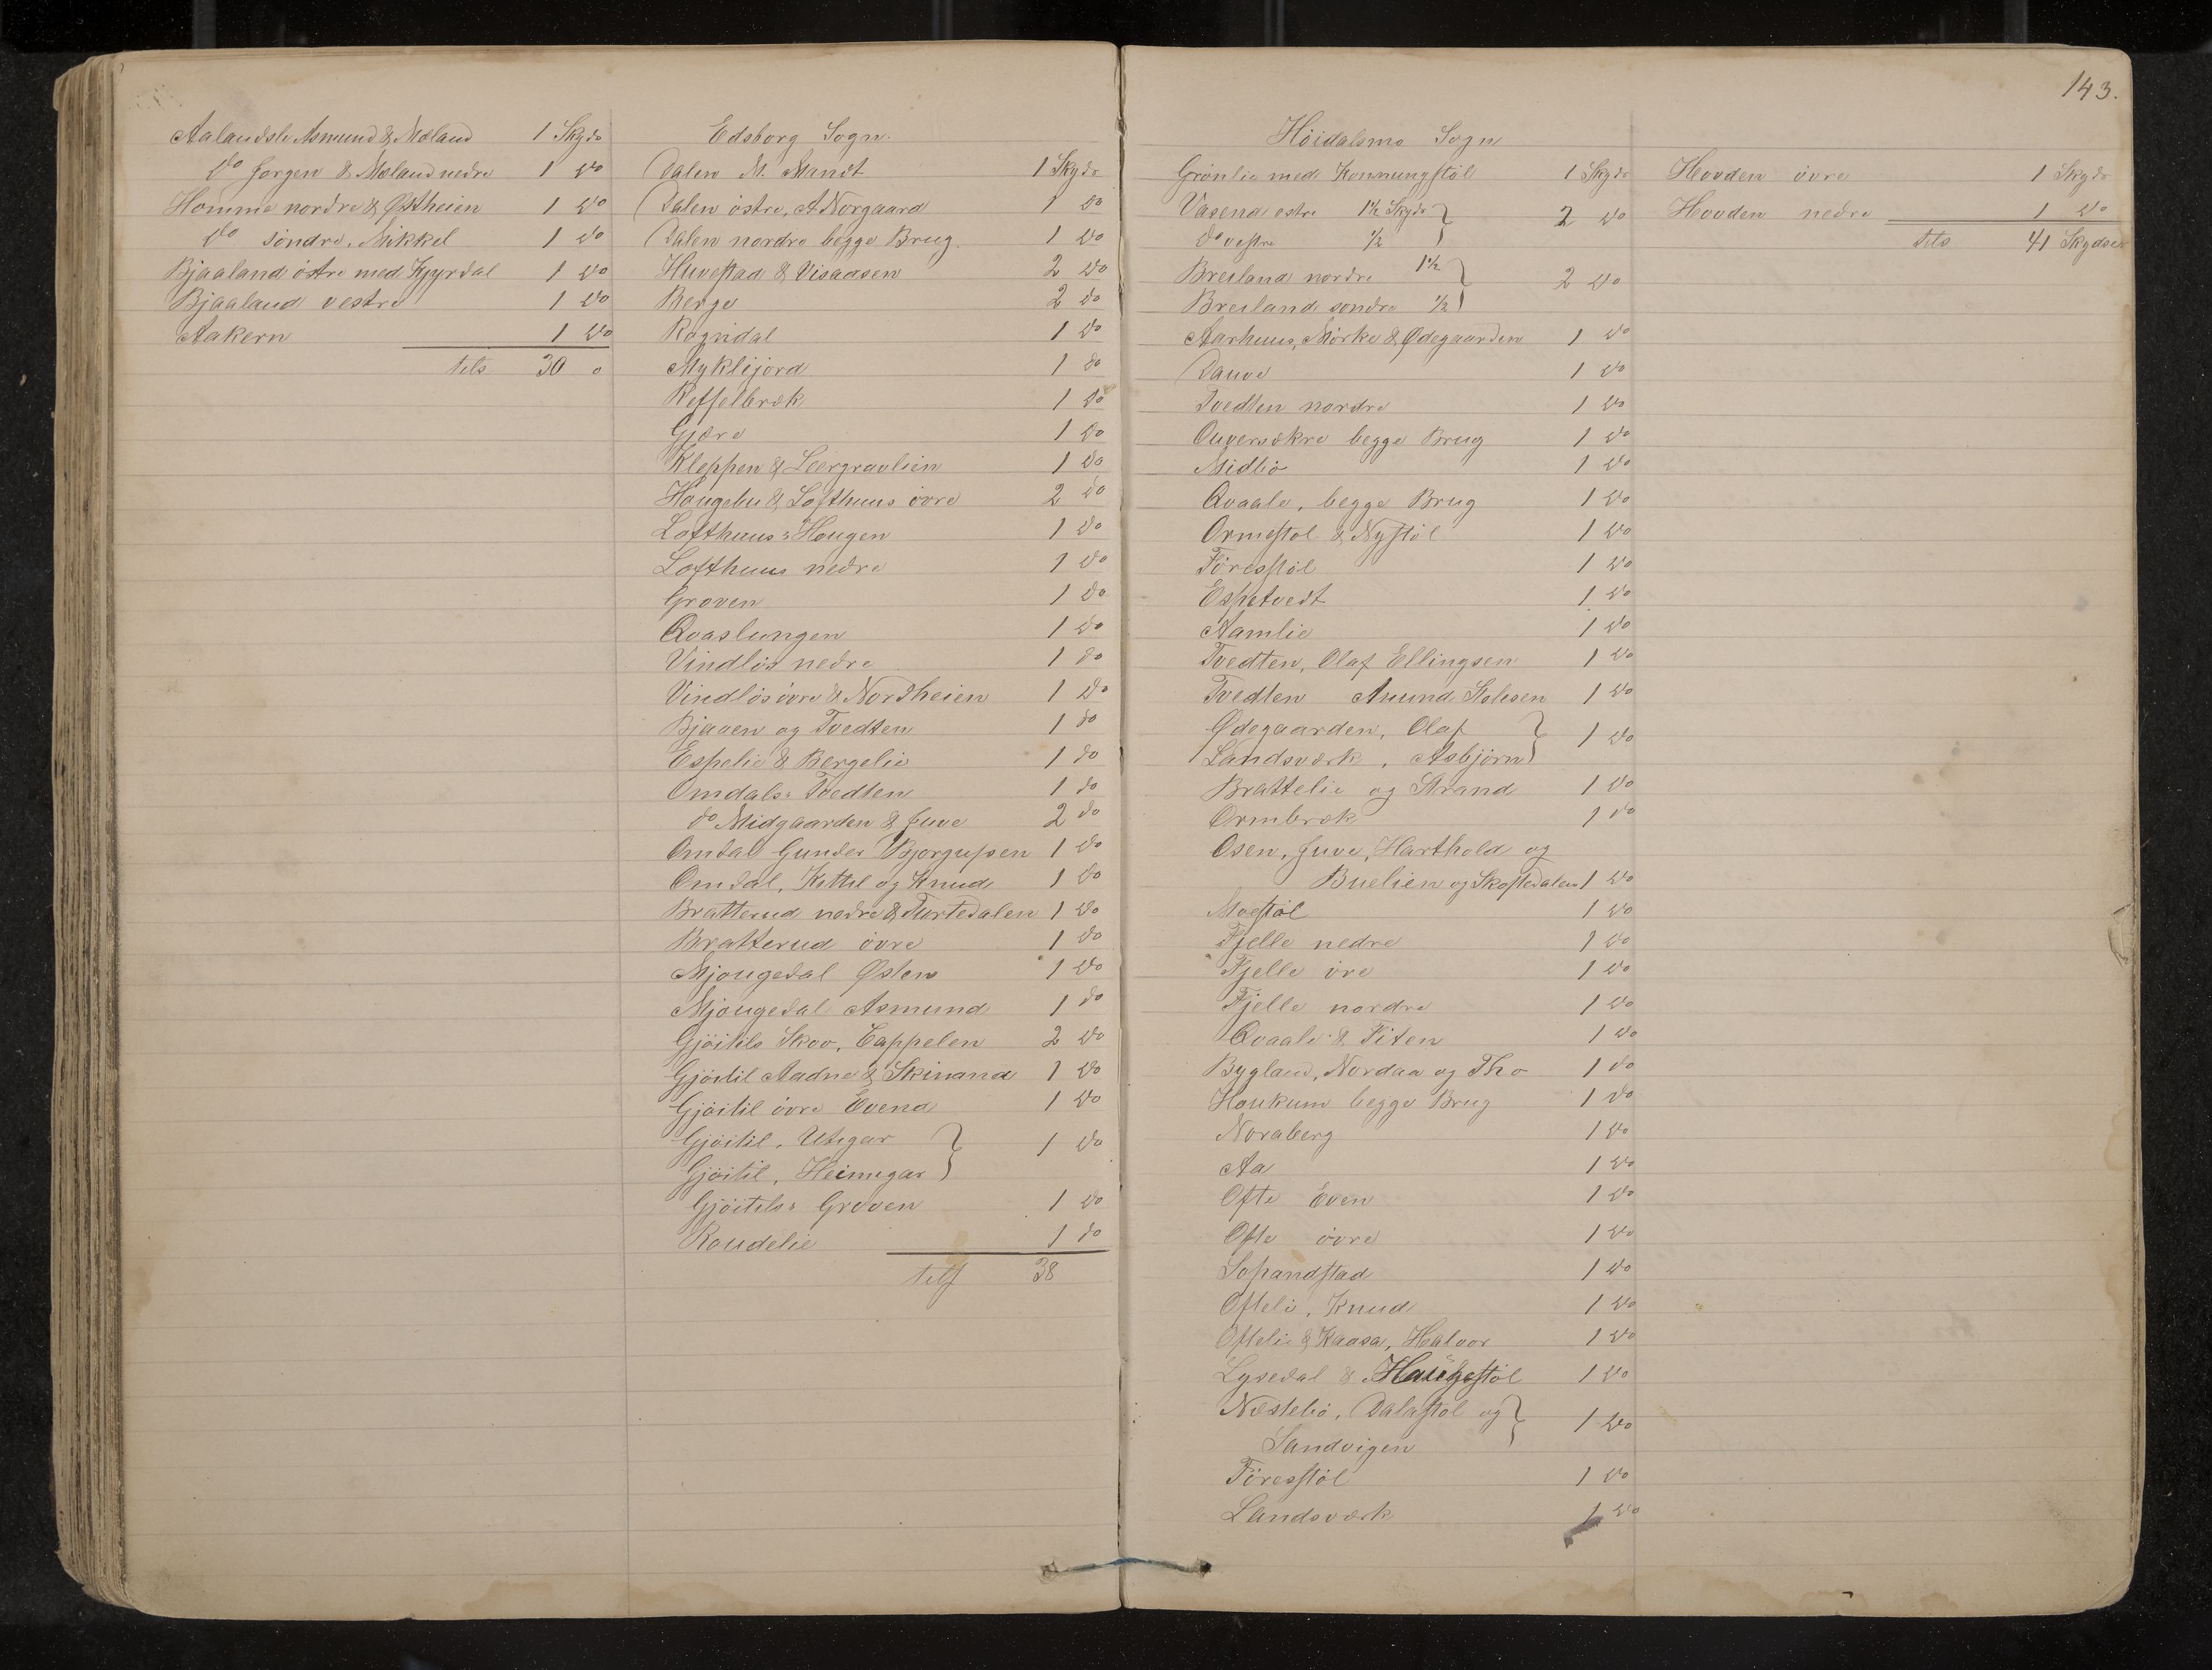 143.
Aalandsli Asmund & Mæland 1 Skyds
do Jørgen & Mæland nedre 1 do
Homme nordre & Østheien 1 do
do söndre, Mikkel 1 do
Bjaaland östre med Kyrdal 1 do
Bjaaland vestre 1 do
Aakern 1 do
tils 30
Edsborg Sogn.
Dalen M. Mandt 1 Skyds
Dalen östre, A Norgaard 1 do
Dalen nordre begge Brug. 1 do
Huvestad & Visaasen 2 do
Berge 2 do
Ragndal 1 do
Myklijord 1 do
Resselbræk 1 do
Gjære 1 do
Kleppen & Leergravlien 1 do
Hougebu & Lofthuus övre 2 do
Lofthuus: Hougen 1 do
Lofthuus nedre 1 do
Groven 1 do
Qvaslungen 1 do
Vindlös nedre 1 do
Vindlös övre & Nordheien 1 do
Bjaaen og Tvedten 1 do
Espelie & Bergelie 1 do
Omdals: Tvedten 1 do
do Midgaarden & Juve 2 do
Omdal Gunder Bjorgulsen 1 do
Omdal, Kittil og Knud 1 do
Bratterud nedre & Turtedalen 1 do
Bratterud övre 1 do
Mjougedal Østen 1 do
Mjougedal Asmund 1 do
Gjöitils Skov, Cappelen 2 do
Gjöitil Aadne & Skinand 1 do
Gjöitil övre Evend 1 do
Gjöitil, Utigar } 1 do
Gjöitil, Heimigar
Gjöitils: Groven 1 do
Roudelie 1 do
tils 38
Höidalsmo Sogn
Grönlie med Konnungstöl 1 Skyds
Vasend östre 1½ Skyds } 2 do
do vestre ½
Breiland nordre 1½ } 2 do
Breiland söndre ½
Aarhuus, Mörke & Ødegaarden 1 do
Dauve 1 do
Tvedten nordre 1 do
Ouversakre begge Brug 1 do
Midbö 1 do
Qvaale, begge Brug 1 do
Ormestöl & Nystöl 1 do
Föresstöl 1 do
Espetvedt 1 do
Aamlie 1 do
Tvedten, Olaf Ellingsen 1 do
Tvedten Aamund 1 do
Ødegaarden, Olaf } 1 do
Landsværk, Asbjörn
Brattelie og Strand 1 do
Ormbræk 1 do
Osen, Juve, Harthold og
Buelien og Skoftedalen 1 do
Moestöl 1 do
Fjelle nedre 1 do
Fjelle övre 1 do
Fjelle nordre 1 do
Qvaale & Fiten 1 do
Bygland, Nordaa og Tho 1 do
Houkum begge Brug 1 do
Noraberg 1 do
Aa 1 do
Ofte Even 1 do
Ofte övre 1 do
Lofsandstad 1 do
Ofteli, Knud 1 do
Oftelie & Kaasa, Halvor 1 do
Lysedal & Haugestöl 1 do
Næstebö, Dalastöl og } 1 do
Sandvigen
Föresstöl 1 do
Landsværk 1 do
Hovden övre 1 Skyds
Hovden nedre 1 do
tils 41 Skydse